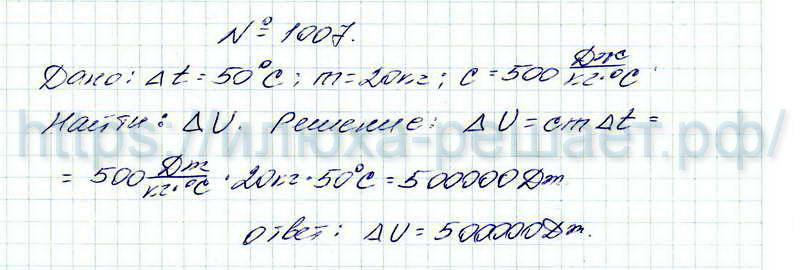 № 1007.
Дано: Δt = 50°C; m = 20кг; c = 500 Дж/кг·°C.
Найти: ΔU. Решение: ΔU = cmΔt =
= 500 Дж/кг·°C · 20кг · 50°C = 500000Дж
ответ: ΔU = 500000Дж.
https://илюха-решает.рф/